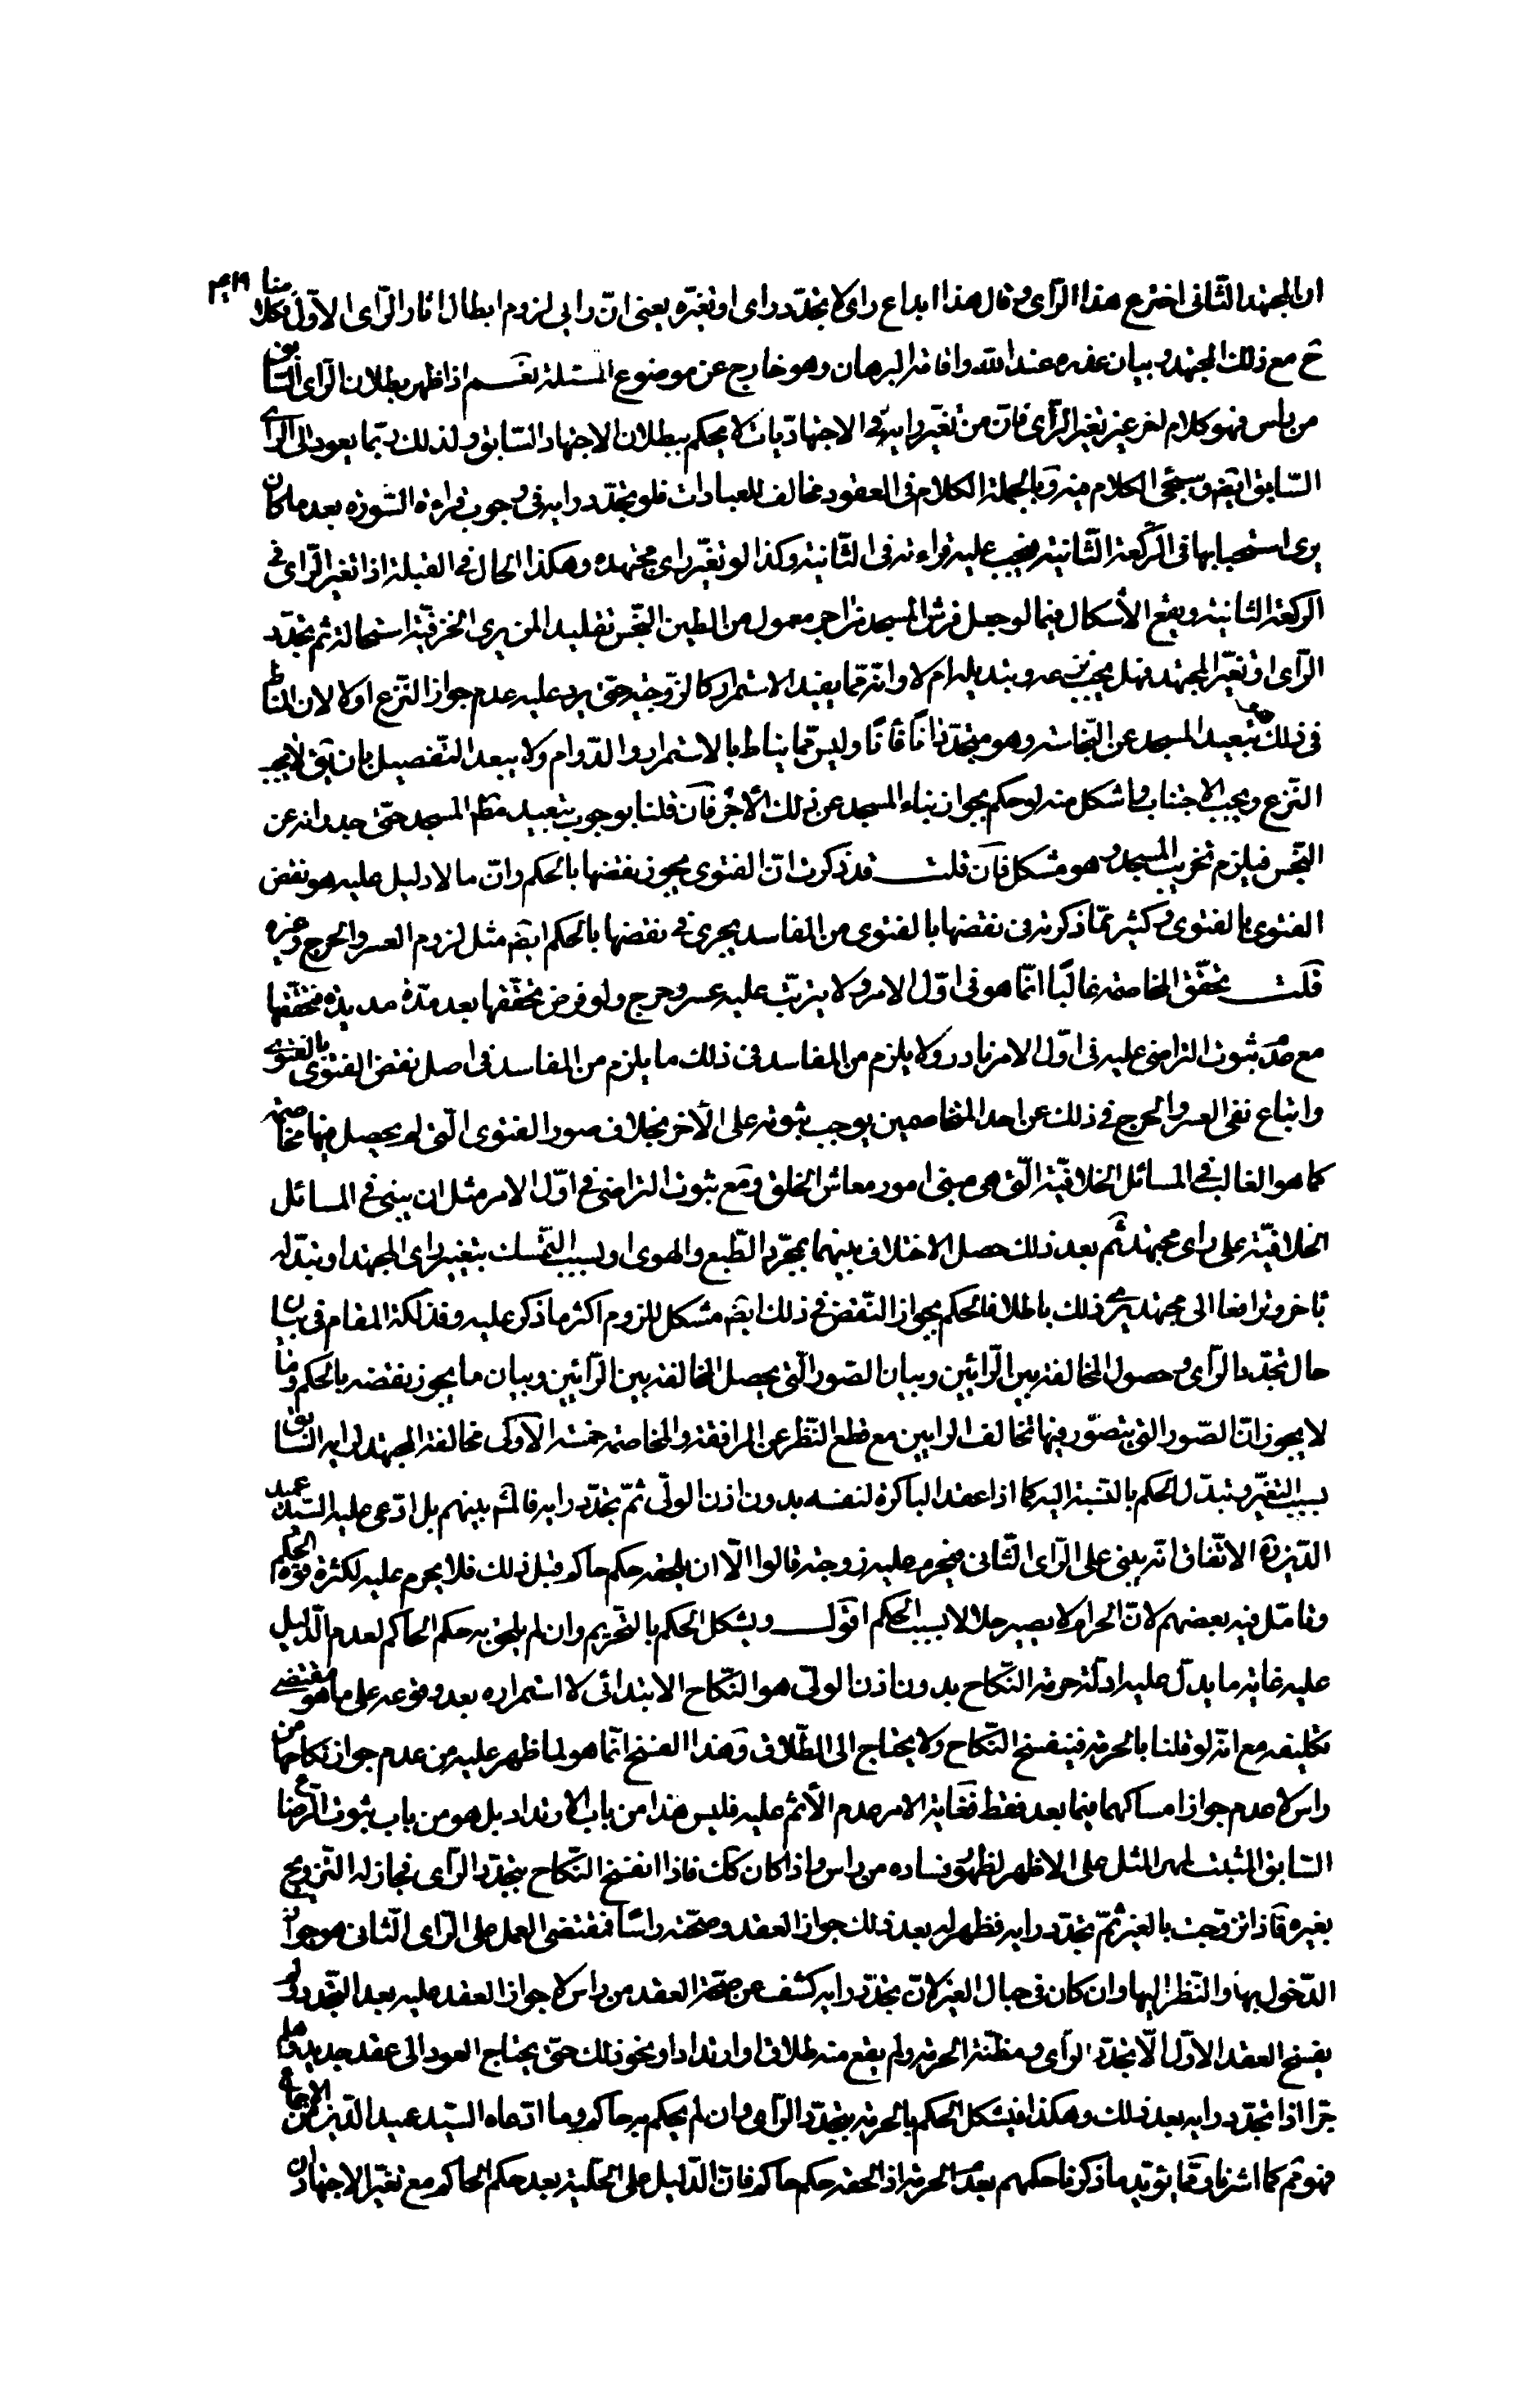 ان المجتهد الثّانى اخترع هذا الرّاى وقال هذا ابداع راى لا تجدّد راى او تغيّره يعنى انّ رايى لزوم ابطال اثار الرّاى الاوّل فكلامنا
ح مع ذلك المجتهد وبيان عذره عند اللّه واقامة البرهان وهو خارج عن موضوع المسئلة نعـــم اذا ظهر بطلان الرّاى السّابق
من راس فهو كلام اخر غير تغير الرّاى فانّ من تغيّر رايه فى الاجتهاديّات لا يحكم ببطلان الاجتهاد السّابق ولذلك ربّما يعود الى الرّاى
السّابق ايضا وسيجئ الكلام فيه وبالجملة الكلام فى العقود مخالف للعبادات فلو تجدّد رايه فى وجوب قراءة السّورة بعد ما كان
يرى استحبابها فى الرّكعة الثّانية فيجب عليه قراءته فى الثّانية وكذا لو تغيّر راى مجتهده وهكذا الحال فى القبلة اذا تغير الرّاى فى
الركعة الثانية ويقع الأشكال فيما لو جعل فرش المسجد من اجر معمول من الطين النّجس تقليدا لمن يرى الخزفيّة استحالة ثم تجدّد
الرّاى او تغيّر المجتهد فهل يجب نزعه وتبديله ام لا وانّه ممّا يفيد الاستمرار كالزّوجيّة حتّى يرد عليه عدم جواز النّزع او لا لان المناط
فى ذلك تبعيد المسجد عن النّجاسة وهو متجدّد اناً فاناً وليس ممّا يناط بالاستمرار والدّوام ولا يبعد التّفصيل بان يق لا يجب
النّزع ويجب الاجتناب واشكل منه لو حكم بجواز بناء المسجد عن ذلك الأجر فان قلنا بوجوب تبعيد مطلق المسجد حتّى جدرانه عن
النّجس فيلزم تخريب المسجد وهو مشكل فان قلت قد ذكرت انّ الفتوى يجوز نقضها بالحكم وانّ ما لا دليل عليه هو نقض
الفتوى بالفتوى وكثير ممّا ذكرته فى نقضها بالفتوى من المفاسد يجرى فى نقضها بالحكم ايضا مثل لزوم العسر والحرج وغيره
قلت تحقّق المخاصمة غالبًا انّما هو فى اوّل الامر ولا يترتّب عليه عسر وحرج ولو فرض تحقّقها بعد مدّة مديدة فتحقّقها
مع عدم ثبوت التراضى عليه فى اوّل الامر نادر ولا يلزم من المفاسد فى ذلك ما يلزم من المفاسد فى اصل نقض الفتوى بالفتوى
واتباع نفى العسر والحرج فى ذلك عن احد المتخاصمين يوجب ثبوته على الأخر بخلاف صور الفتوى الّتى لم يحصل فيها مخاصمة
كما هو الغالب فى المسائل الخلافيّة الّتى هى مبنى امور معاش الخلق ومع ثبوت التراضى فى اوّل الامر مثل ان يبنى فى المسائل
الخلافيّة على راى مجتهد ثم بعد ذلك حصل الاختلاف بينهما بمجرّد الطّبع والهوى او لسبب التمسّك بتغيير راى المجتهد او تبدّله
باخر وترافعا الى مجتهد يرى ذلك باطلا فالحكم بجواز النّقض فى ذلك ايضا مشكل للزوم اكثر ما ذكر عليه وفذلكة المقام فى بيان
حال تجدّد الرّاى وحصول المخالفة بين الرّائين وبيان الصّور الّتى يحصل المخالفة بين الرّائين وبيان ما يجوز نقضه بالحكم وما
لا يجوز انّ الصّور التى يتصوّر فيها تخالف الرايين مع قطع النّظر عن المرافعة والمخاصمة خمسة الأولى مخالفة المجتهد لرايه السّابق
بسبب التغيّر وتبدّل الحكم بالنّسبة اليه كما اذا عقد الباكرة لنفسه بدون اذن الولّى ثمّ تجدّد رايه فالمشهور بينهم بل ادّعى عليه السّيّد عميد
الدّين ره الاتّفاق انّه يبنى على الرّاى الثّانى فيحرم عليه زوجته قالوا الّا ان يلحقه حكم حاكم قبل ذلك فلا يحرم عليه لكثرة قوّة الحكم
وتامّل فيه بعضهم لانّ الحرام لا يصير حلالا بسبب الحكم اقول ويشكل الحكم بالتّحريم وان لم يلحق به حكم الحاكم لعدم الدّليل
عليه غاية ما يدلّ عليه ادلّة حرمة النّكاح بدون اذن الولّى هو النّكاح الابتدائى لا استمراره بعد وقوعه على ما هو مقتضى
تكليفه مع انّه لو قلنا بالحرمة فينفسخ النّكاح ولا يحتاج الى الطّلاق وهذا الفسخ انّما هو لما ظهر عليه من عدم جواز نكاحها من
راس لا عدم جواز امساكهما فيما بعد فقط فغاية الامر عدم الأثم عليه فليس هذا من باب الارتداد بل هو من باب ثبوت الرّضاع
السّابق المثبت لمهر المثل على الاظهر لظهور فساده من راس واذا كان كك فاذا انفسخ النّكاح بتجدّد الرّاى فجاز له التّزويج
بغيره فاذا تزوّجت بالغير ثمّ تجدّد رايه فظهر له بعد ذلك جواز العقد وصحّته راسًا فمقتضى العمل على الرّاى الثّانى هو جواز
الدّخول بها والنّظر اليها وان كان فى حبال الغير لانّ تجدّد رايه كشف عن صحّة العقد من راس لا جواز العقد عليه بعد التّجدد ولم
يفسخ العقد الاوّل الّا تجدّد الرّاى ومظنّة الحرمة ولم يقع منه طلاق او ارتداد او نحو ذلك حتّى يحتاج العود الى عقد جديد وهلمّ
جرّا اذا تجدّد رايه بعد ذلك وهكذا فيشكل الحكم بالحرمة بتجدّد الرّاى وان لم يحكم به حاكم وما ادّعاه السيّد عميد الدّين من الاجماع
فهو ثم كما اشرنا وممّا يؤيّد ما ذكرنا حكمهم بعدم الحرمة اذا لحقه حكم حاكم فانّ الدّليل على الحليّة بعد حكم الحاكم مع تغيّر الاجتهاد ان